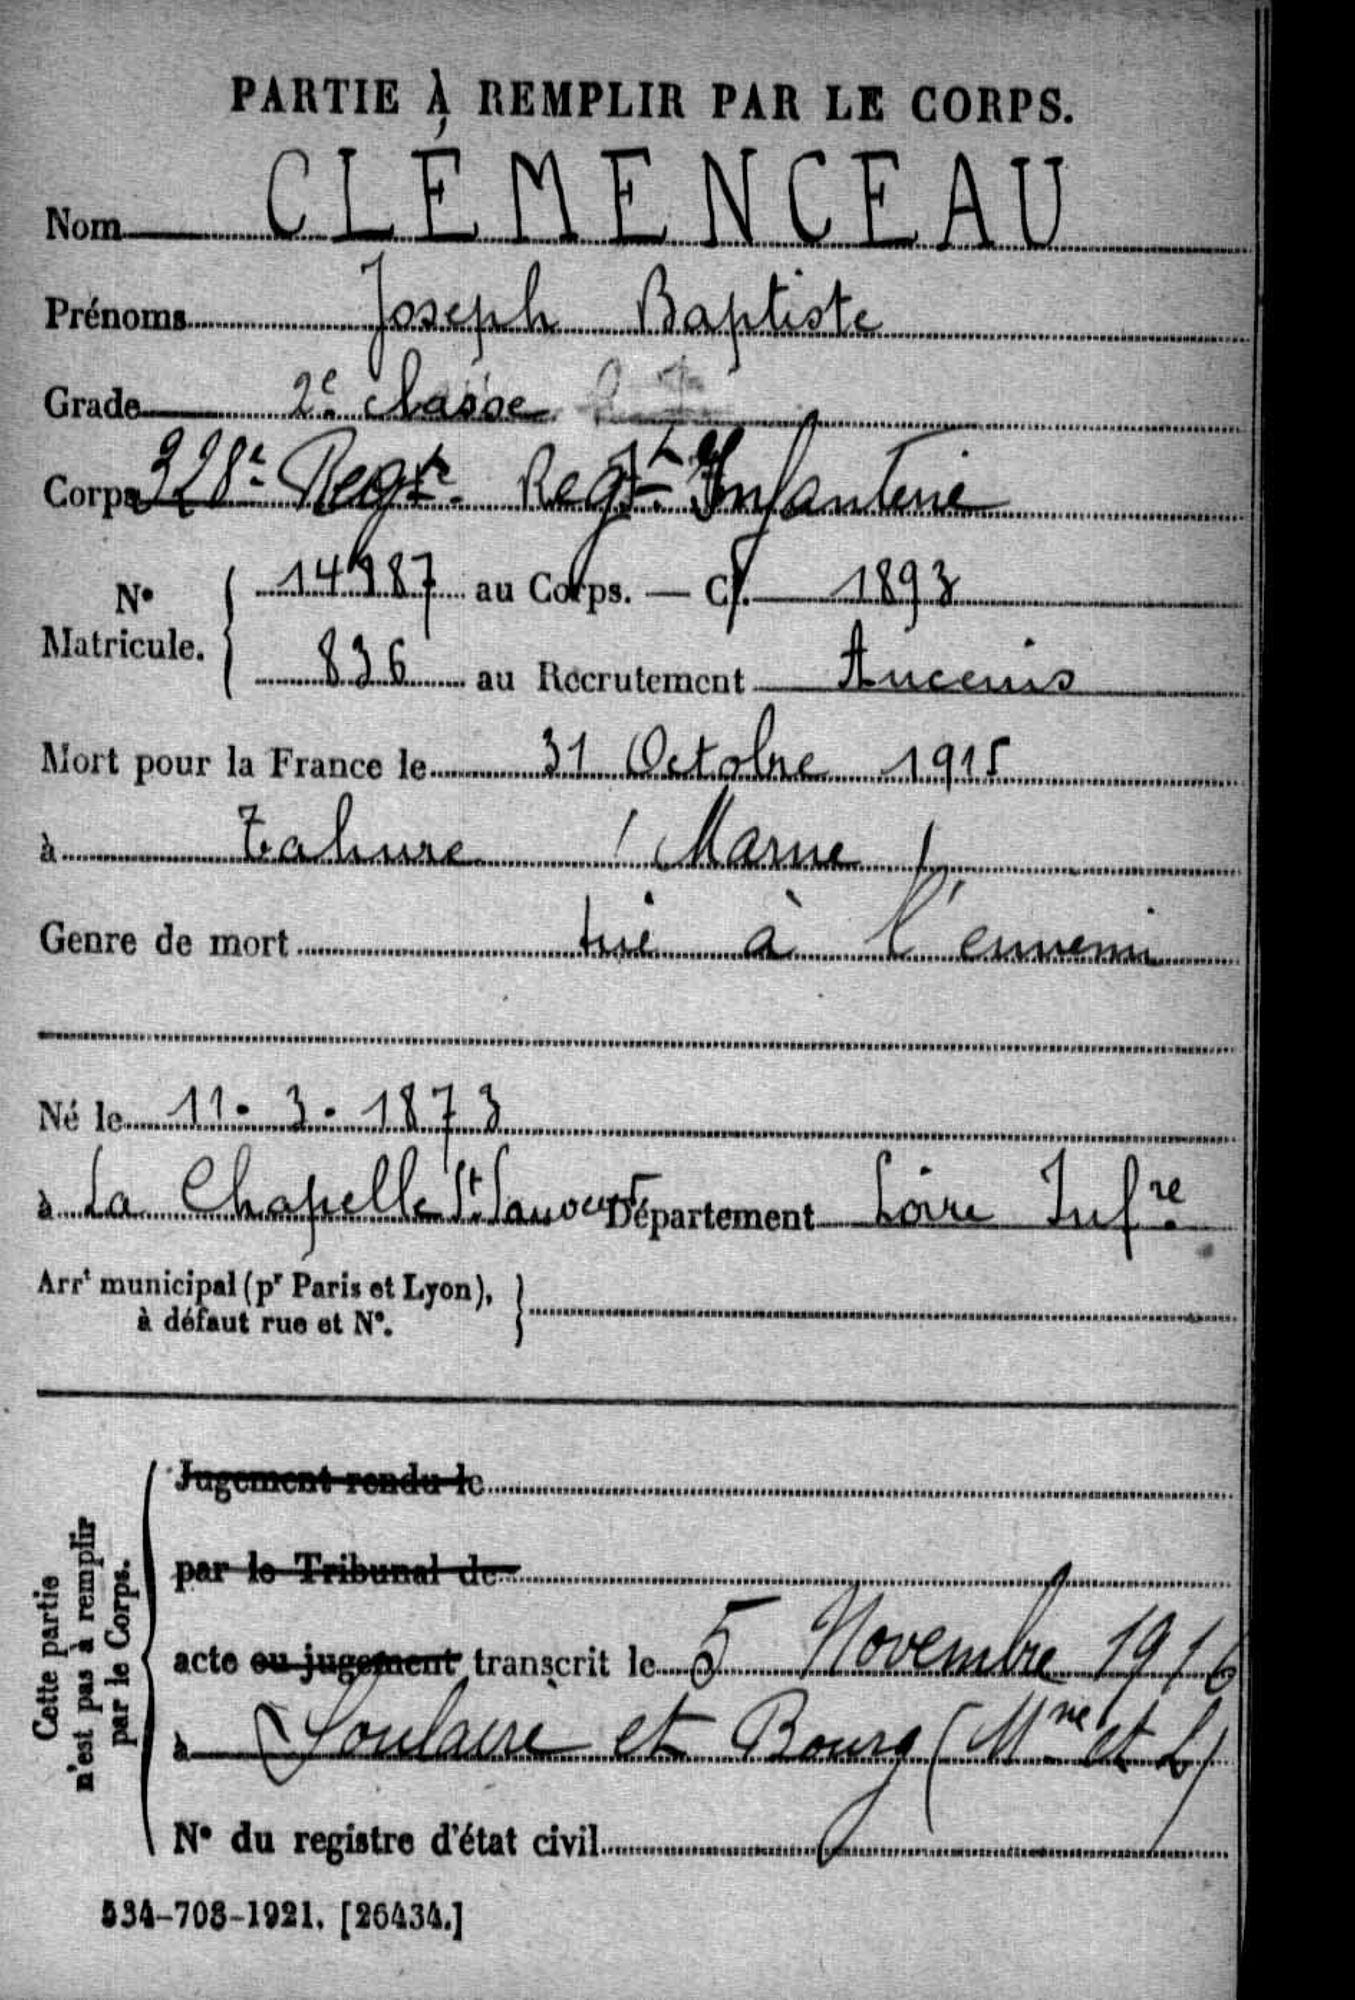 PARTIE À REMPLIR PAR LE CORPS.
Nom CLÉMENCEAU
Prénoms Joseph Baptiste
Grade 2e classe
Corps 328e Regt. Regt. d'Infanterie
N° Matricule. 14987 au Corps. — Cl. 1893
836 au Recrutement Ancenis
Mort pour la France le 31 Octobre 1915
à Tahure (Marne)
Genre de mort tué à l'ennemi
Né le 11. 3. 1873
à La Chapelle St. Sauveur Département Loire Infre
Arrt municipal (pr Paris et Lyon),
à défaut rue et N°.
Cette partie
n'est pas à remplir
par le Corps.
Jugement rendu le
par le Tribunal de
acte ou jugement transcrit le 5 Novembre 1916
à Soulaire et Bourg (Mne et L)
N° du registre d'état civil
534-708-1921. [26434.]